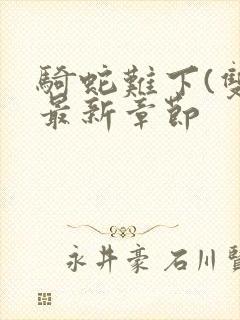 騎蛇難下(雙
最新章節
永井豪 石川賢